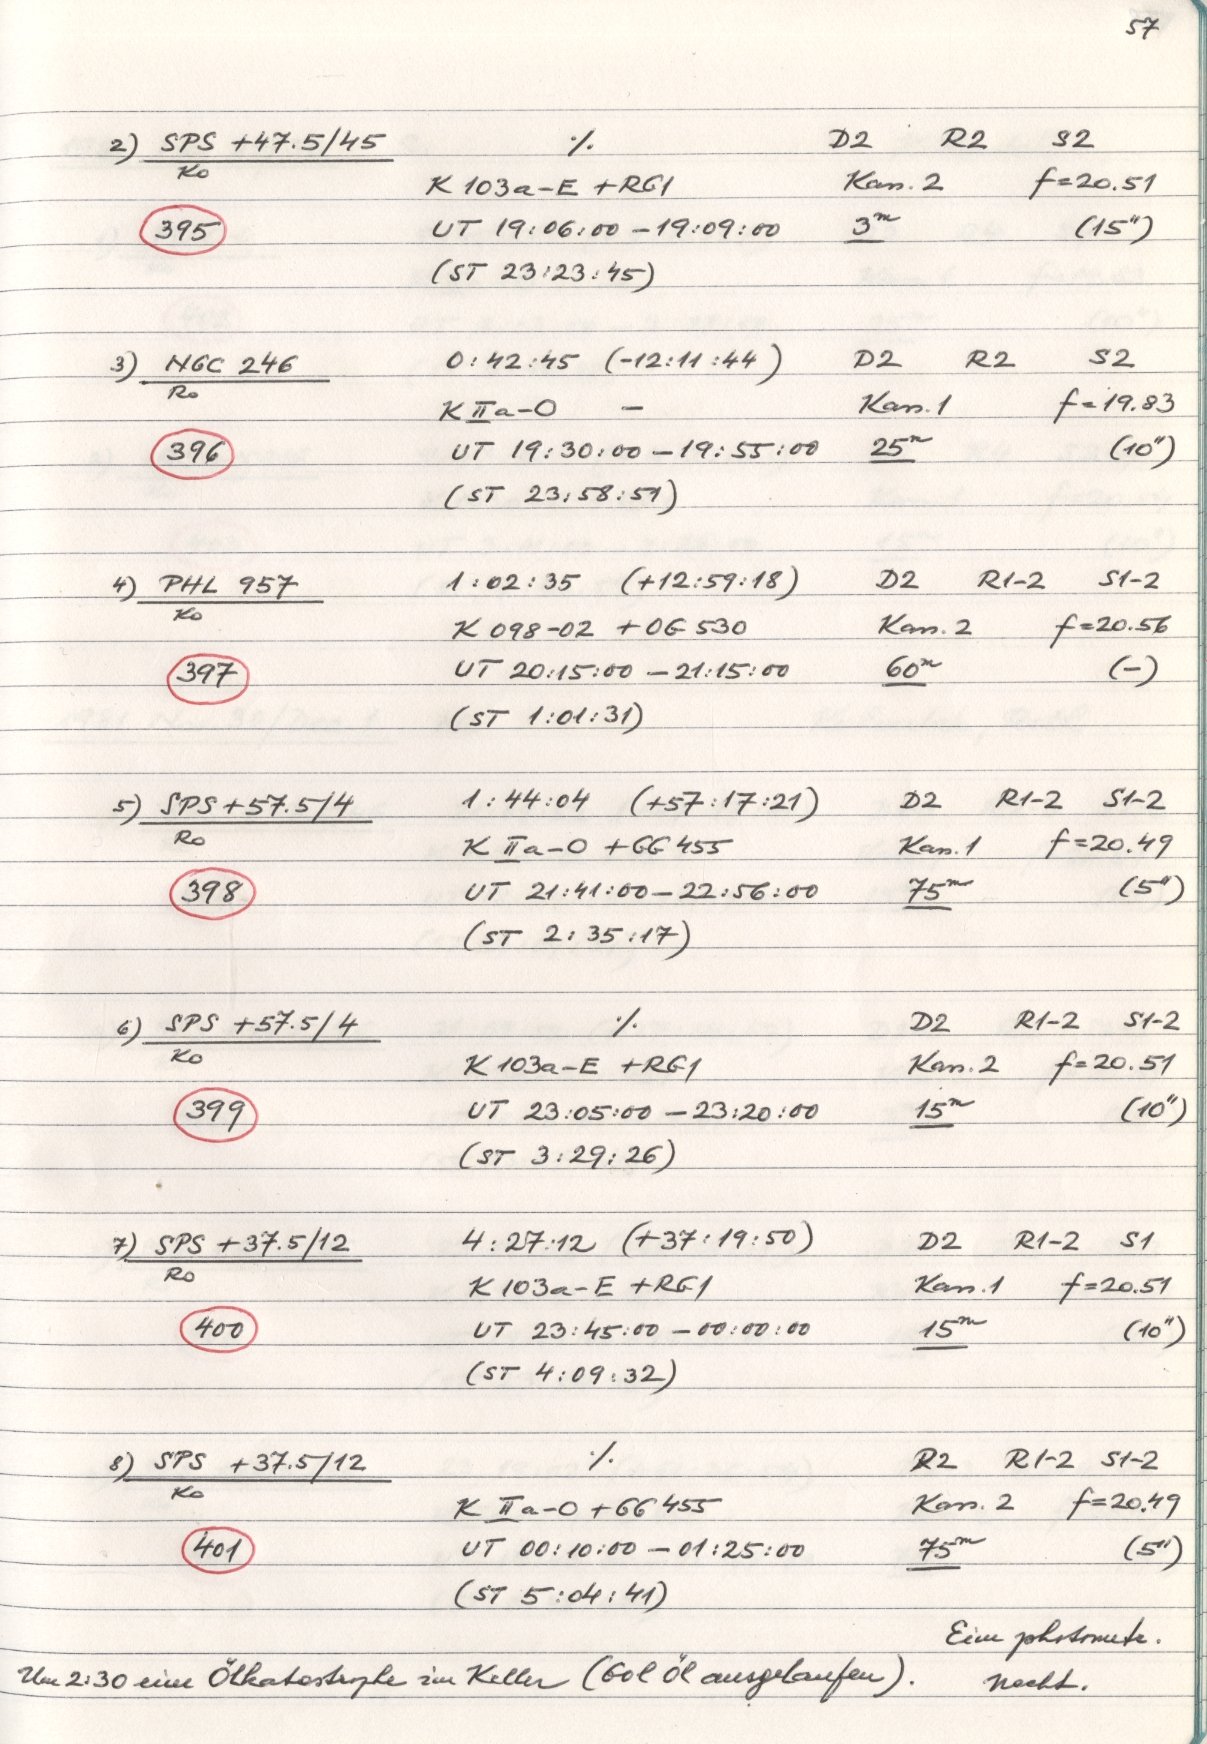 57
2) SPS +47.5/45 ٪ D2 R2 S2
Ko K 103a-E +RG1 Kan. 2 f=20.51
395 UT 19:06:00 - 19:09:00 3m (15")
(ST 23:23:45)
3) NGC 246 0:42:45 (-12:11:44) D2 R2 S2
Ro K IIa-O - Kan. 1 f=19.83
396 UT 19:30:00 - 19:55:00 25m (10")
(ST 23:58:51)
4) PHL 957 1:02:35 (+12:59:18) D2 R1-2 S1-2
Ko K 098-02 +OG 530 Kan. 2 f=20.56
397 UT 20:15:00 - 21:15:00 60m (-)
(ST 1:01:31)
5) SPS +57.5/4 1:44:04 (+57:17:21) D2 R1-2 S1-2
Ro K IIa-O +GG 455 Kan. 1 f=20.49
398 UT 21:41:00 - 22:56:00 75m (5")
(ST 2:35:17)
6) SPS +57.5/4 ٪ D2 R1-2 S1-2
Ko K 103a-E +RG1 Kan. 2 f=20.51
399 UT 23:05:00 - 23:20:00 15m (10")
(ST 3:29:26)
7) SPS +37.5/12 4:27:12 (+37:19:50) D2 R1-2 S1
Ro K 103a-E +RG1 Kan. 1 f=20.51
400 UT 23:45:00 - 00:00:00 15m (10")
(ST 4:09:32)
8) SPS +37.5/12 ٪ R2 R1-2 S1-2
Ko K IIa-O +GG 455 Kan. 2 f=20.49
401 UT 00:10:00 - 01:25:00 75m (5")
(ST 5:04:41)
Eine photometr.
Um 2:30 eine Ölkatastrophe im Keller (60l Öl ausgelaufen). Nacht.